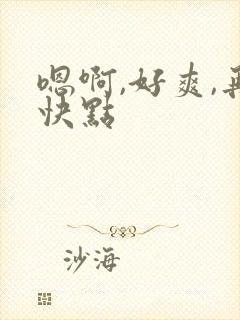 嗯啊,好爽,再
快點
沙海